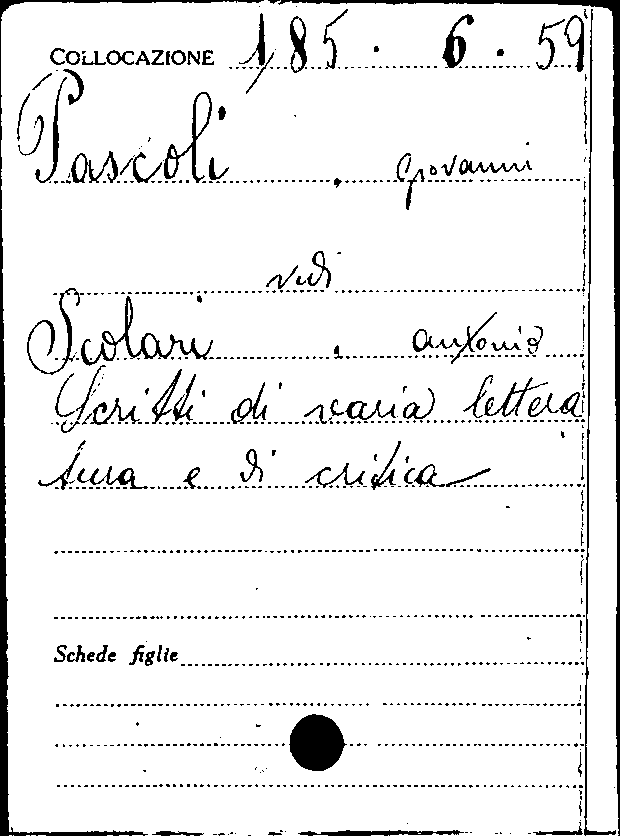 COLLOCAZIONE 185. 6. 59
Pascoli, Giovanni
vedi
Scolari, Antonio
Scritti di varia lettera
tura e di critica
Schede figlie